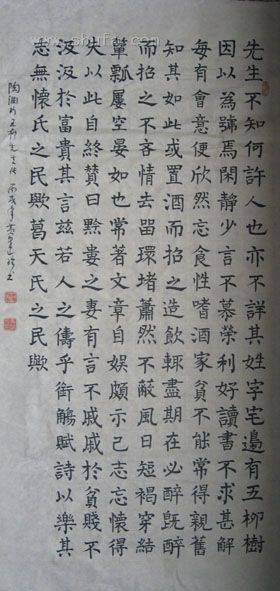 先生不知何許人也亦不詳其姓字宅邊有五柳樹
因以為號焉閑靜少言不慕榮利好讀書不求甚解
每有會意便欣然忘食性嗜酒家貧不能常得親舊
知其如此或置酒而招之造飲輒盡期在必醉既醉
而招之不吝情去留環堵蕭然不蔽風日短褐穿結
簞瓢屢空晏如也常著文章自娛頗示己志忘懷得
失以此自終贊曰黔婁之妻有言不戚戚於貧賤不
汲汲於富貴其言茲若人之儔乎銜觴賦詩以樂其
志無懷氏之民歟葛天氏之民歟
陶淵明五柳先生傳丙戌年